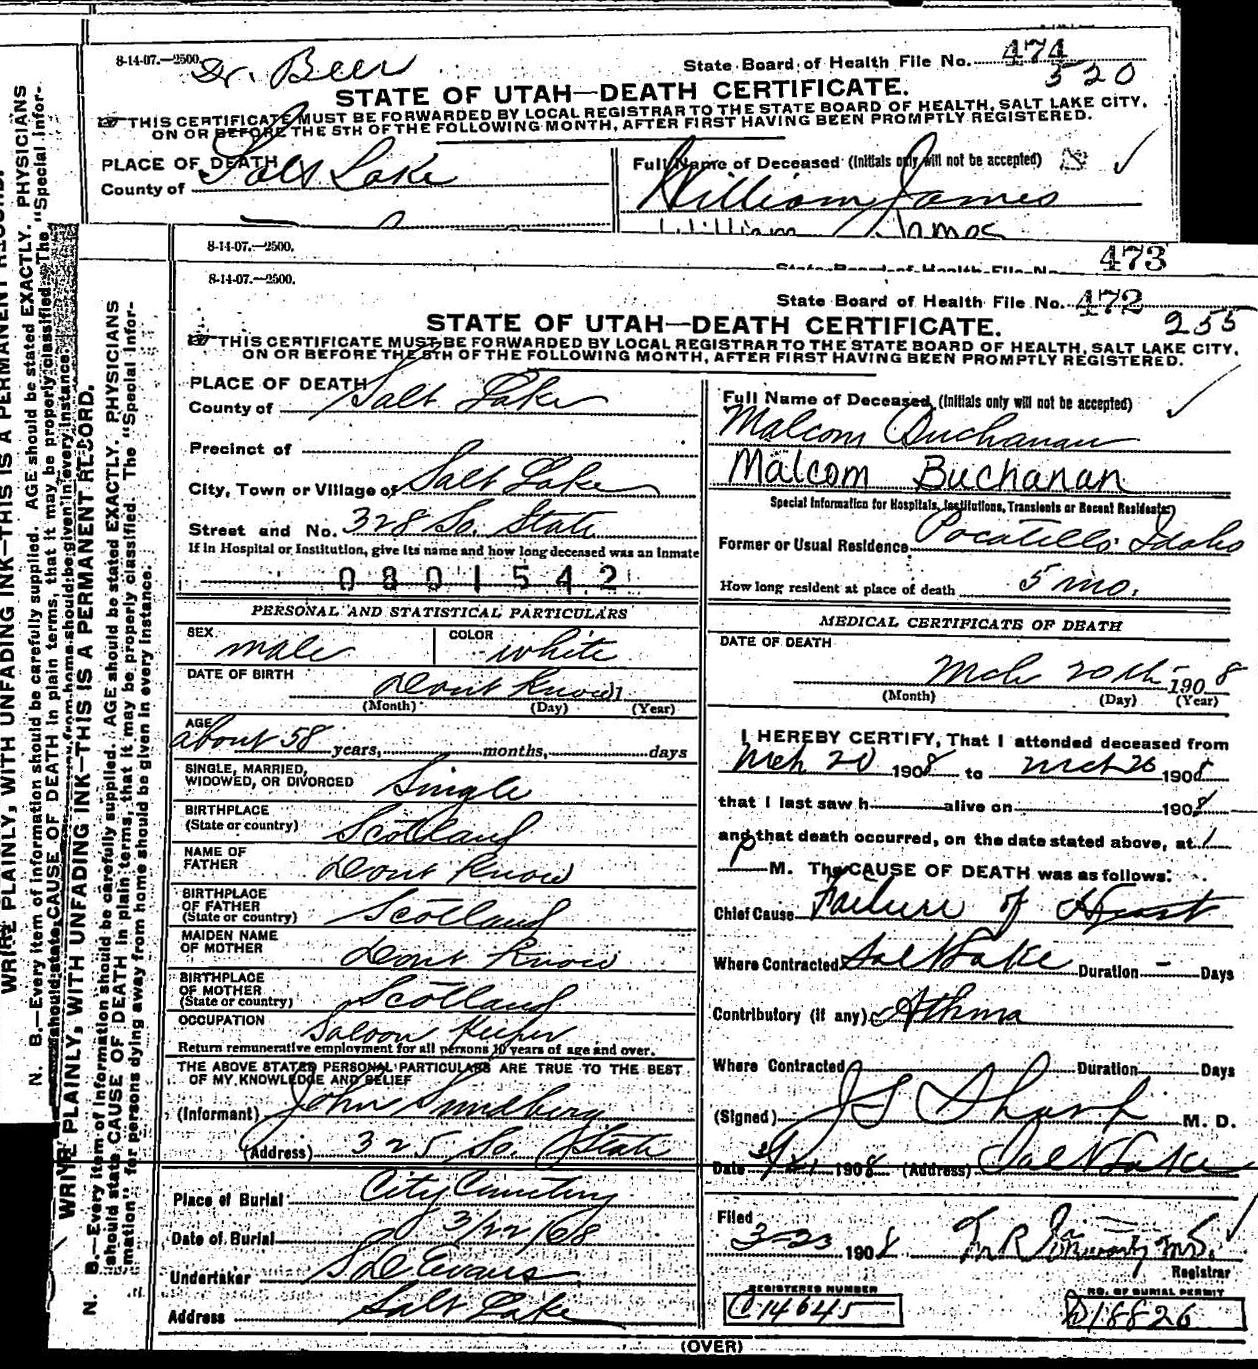 8-14-07.—2500.
Dr. Beer
State Board of Health File No. 474
520
STATE OF UTAH—DEATH CERTIFICATE.
THIS CERTIFICATE MUST BE FORWARDED BY LOCAL REGISTRAR TO THE STATE BOARD OF HEALTH, SALT LAKE CITY,
ON OR BEFORE THE 5TH OF THE FOLLOWING MONTH, AFTER FIRST HAVING BEEN PROMPTLY REGISTERED.
PLACE OF DEATH
County of Salt Lake
Full Name of Deceased (Initials only will not be accepted)
William James
William James
8-14-07.—2500.
State Board of Health File No. 473
8-14-07.—2500.
State Board of Health File No. 472
255
STATE OF UTAH—DEATH CERTIFICATE.
THIS CERTIFICATE MUST BE FORWARDED BY LOCAL REGISTRAR TO THE STATE BOARD OF HEALTH, SALT LAKE CITY,
ON OR BEFORE THE 5TH OF THE FOLLOWING MONTH, AFTER FIRST HAVING BEEN PROMPTLY REGISTERED.
PLACE OF DEATH
County of Salt Lake
Precinct of
City, Town or Village of Salt Lake
Street and No. 328 So. State
If in Hospital or Institution, give its name and how long deceased was an inmate
0801542
PERSONAL AND STATISTICAL PARTICULARS
SEX male COLOR white
DATE OF BIRTH Dont Know 1
(Month) (Day) (Year)
AGE
about 58 years, months, days
SINGLE, MARRIED,
WIDOWED, OR DIVORCED Single
BIRTHPLACE
(State or country) Scotland
NAME OF
FATHER Dont Know
BIRTHPLACE
OF FATHER
(State or country) Scotland
MAIDEN NAME
OF MOTHER Dont Know
BIRTHPLACE
OF MOTHER
(State or country) Scotland
OCCUPATION Saloon Keeper
Return remunerative employment for all persons 10 years of age and over.
THE ABOVE STATED PERSONAL PARTICULARS ARE TRUE TO THE BEST
OF MY KNOWLEDGE AND BELIEF
(Informant) John Sundberg
(Address) 325 So. State
Place of Burial City Cemetery
Date of Burial 3/22/08
Undertaker S. D. Evans
Address Salt Lake
Full Name of Deceased (Initials only will not be accepted)
Malcom Buchanan
Malcom Buchanan
Special Information for Hospitals, Institutions, Transients or Recent Residents:
Former or Usual Residence Pocatello Idaho
How long resident at place of death 5 mo.
MEDICAL CERTIFICATE OF DEATH
DATE OF DEATH
Mch 20th 1908
(Month) (Day) (Year)
I HEREBY CERTIFY, That I attended deceased from
Mch 20 1908 to Mch 20 1908
that I last saw h alive on 1908
and that death occurred, on the date stated above, at 1
P M. The CAUSE OF DEATH was as follows:
Chief Cause Failure of Heart
Where Contracted Salt Lake Duration - Days
Contributory (if any) Athma
Where Contracted Duration Days
(Signed) J S Sharp M. D.
Date 3/21 1908 (Address) Salt Lake
Filed
3-23 1908 M.D.
Registrar
REGISTERED NUMBER
C14645
NO. OF BURIAL PERMIT
D18826
(OVER)
WRITE PLAINLY, WITH UNFADING INK—THIS IS A PERMANENT RECORD.
N. B.—Every item of information should be carefully supplied. AGE should be stated EXACTLY. PHYSICIANS
should state CAUSE OF DEATH in plain terms, that it may be properly classified. The "Special Infor-
from home should be given in every instance.
WRITE PLAINLY, WITH UNFADING INK—THIS IS A PERMANENT RECORD.
N. B.—Every item of information should be carefully supplied. AGE should be stated EXACTLY. PHYSICIANS
should state CAUSE OF DEATH in plain terms, that it may be properly classified. The "Special Infor-
mation" for persons dying away from home should be given in every instance.